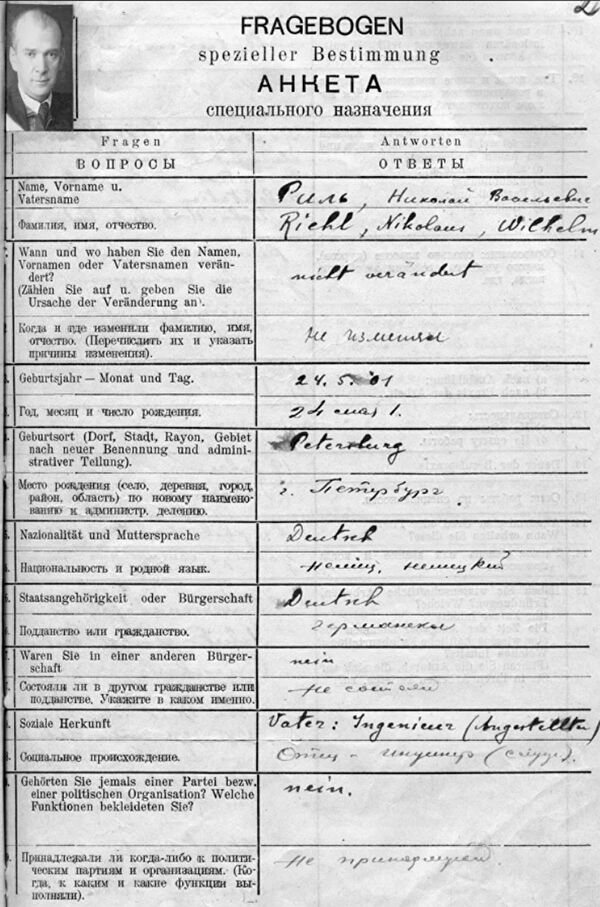 FRAGEBOGEN
spezieller Bestimmung
АНКЕТА
специального назначения
Fragen
Antworten
ВОПРОСЫ
ОТВЕТЫ
Name, Vorname u.
Vatersname
Риль, Николай Васильевич
Фамилия, имя, отчество.
Riehl, Nikolaus, Wilhelm
Wann und wo haben Sie den Namen,
Vornamen oder Vatersnamen verän-
dert?
(Zählen Sie auf u. geben Sie die
Ursache der Veränderung an).
nicht verändert
Когда и где изменили фамилию, имя,
отчество. (Перечислить их и указать
причины изменения).
Не изменял
Geburtsjahr — Monat und Tag.
24. 5. 01
Год, месяц и число рождения.
24 мая 1.
Geburtsort (Dorf, Stadt, Rayon, Gebiet
nach neuer Benennung und admini-
strativer Teilung).
Petersburg
Место рождения (село, деревня, город,
район, область) по новому наимено-
ванию к администр. делению.
г. Петербург
Nazionalität und Muttersprache
Deutsch
Национальность и родной язык.
немец, немецкий
Staatsangehörigkeit oder Bürgerschaft
Deutsch
Подданство или гражданство.
германское
Waren Sie in einer anderen Bürger-
schaft
nein
Состояли ли в другом гражданстве или
подданстве. Укажите в каком именно.
Не состоял
Soziale Herkunft
Vater: Ingenieur (Angestellter)
Социальное происхождение.
Отец - инженер
Gehörten Sie jemals einer Partei bezw.
einer politischen Organisation? Welche
Funktionen bekleideten Sie?
nein.
Принадлежали ли когда-либо к полити-
ческим партиям и организациям. (Ко-
гда, к каким и какие функции вы-
полняли).
Не принадлежал